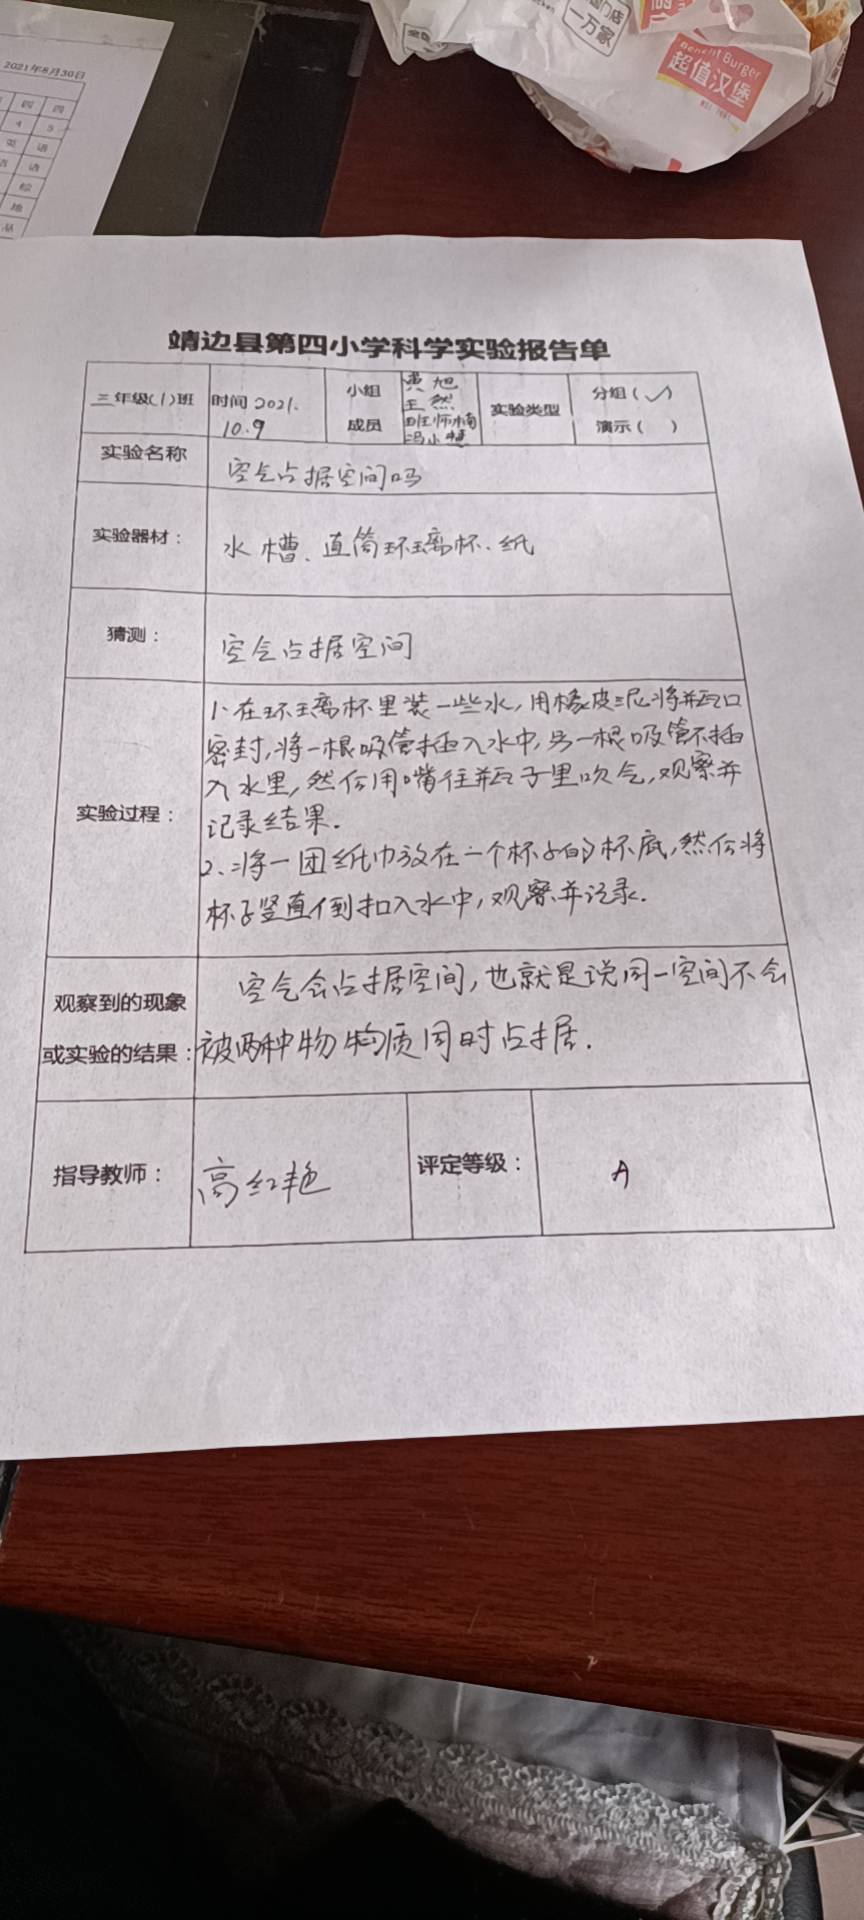 2021年8月30日
四 四
4 5
英 语
语
综
地
品
门店
一万家
Benefit Burger
超值汉堡
靖边县第四小学科学实验报告单
三年级(1)班
时间 2021.
10.9
小组
成员
黄旭
王然
班师楠
冯小慧
实验类型
分组(✓)
演示( )
实验名称
空气占据空间吗
实验器材：
水槽、直筒玻璃杯、纸
猜测：
空气占据空间
实验过程：
1、在玻璃杯里装一些水，用橡皮泥将瓶口
密封，将一根吸管插入水中，另一根吸管不插
入水里，然后用嘴往瓶子里吹气，观察并
记录结果.
2、将一团纸巾放在一个杯子的杯底，然后将
杯子竖直倒扣入水中，观察并记录.
观察到的现象
或实验的结果：
空气会占据空间，也就是说同一空间不会
被两种物物质同时占据.
指导教师：
高红艳
评定等级：
A